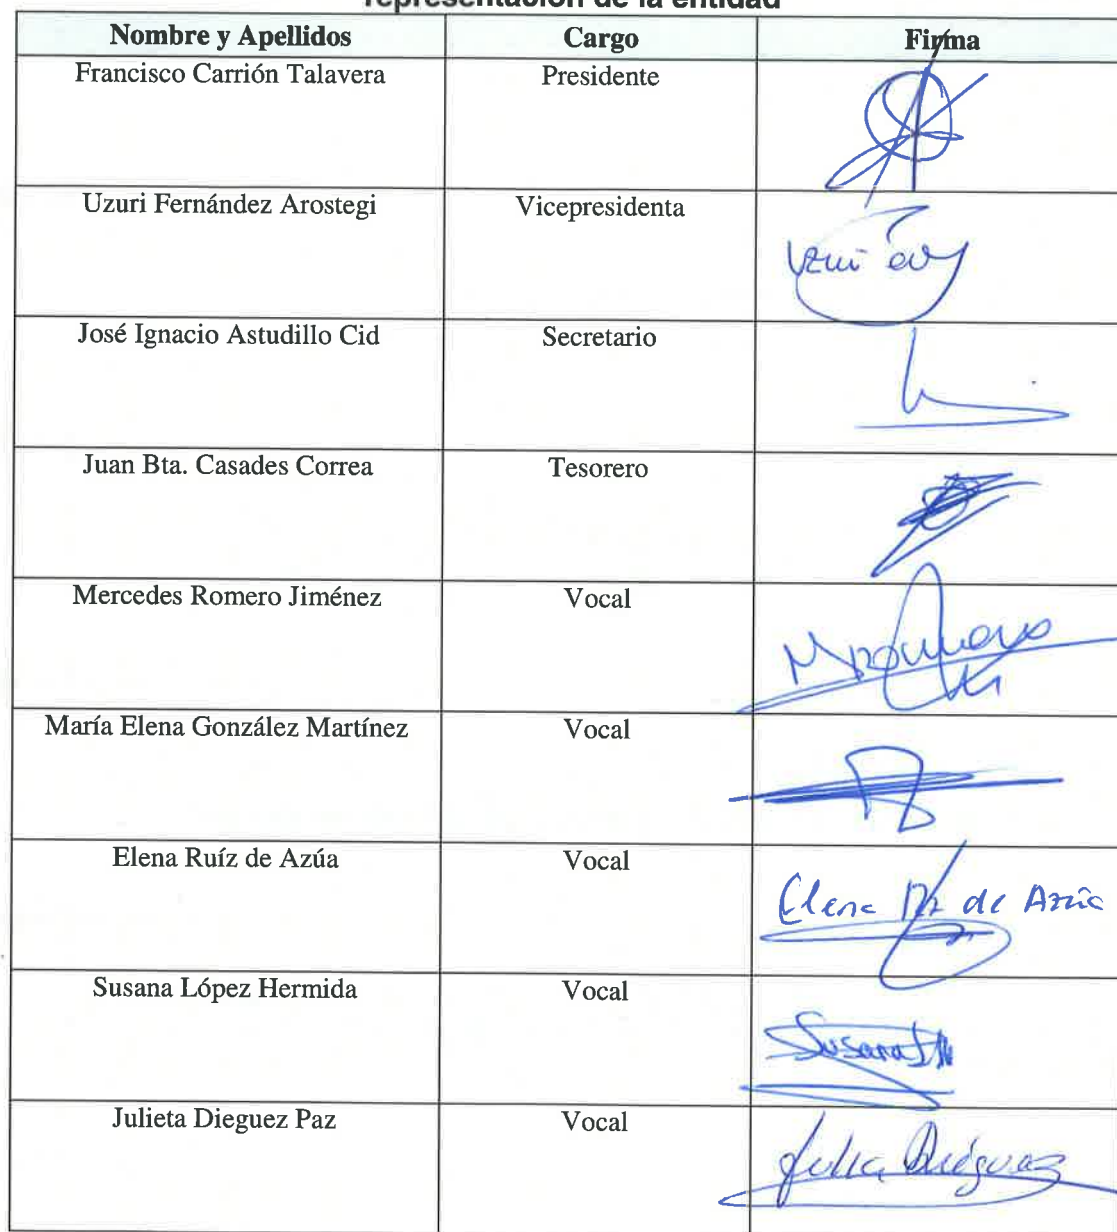 representación de la entidad
Nombre y Apellidos Cargo Firma
Francisco Carrión Talavera Presidente
Uzuri Fernández Arostegi Vicepresidenta
José Ignacio Astudillo Cid Secretario
Juan Bta. Casades Correa Tesorero
Mercedes Romero Jiménez Vocal
MRomero
María Elena González Martínez Vocal
Elena Ruíz de Azúa Vocal
Elena Rz de Azúa
Susana López Hermida Vocal
Susana
Julieta Dieguez Paz Vocal